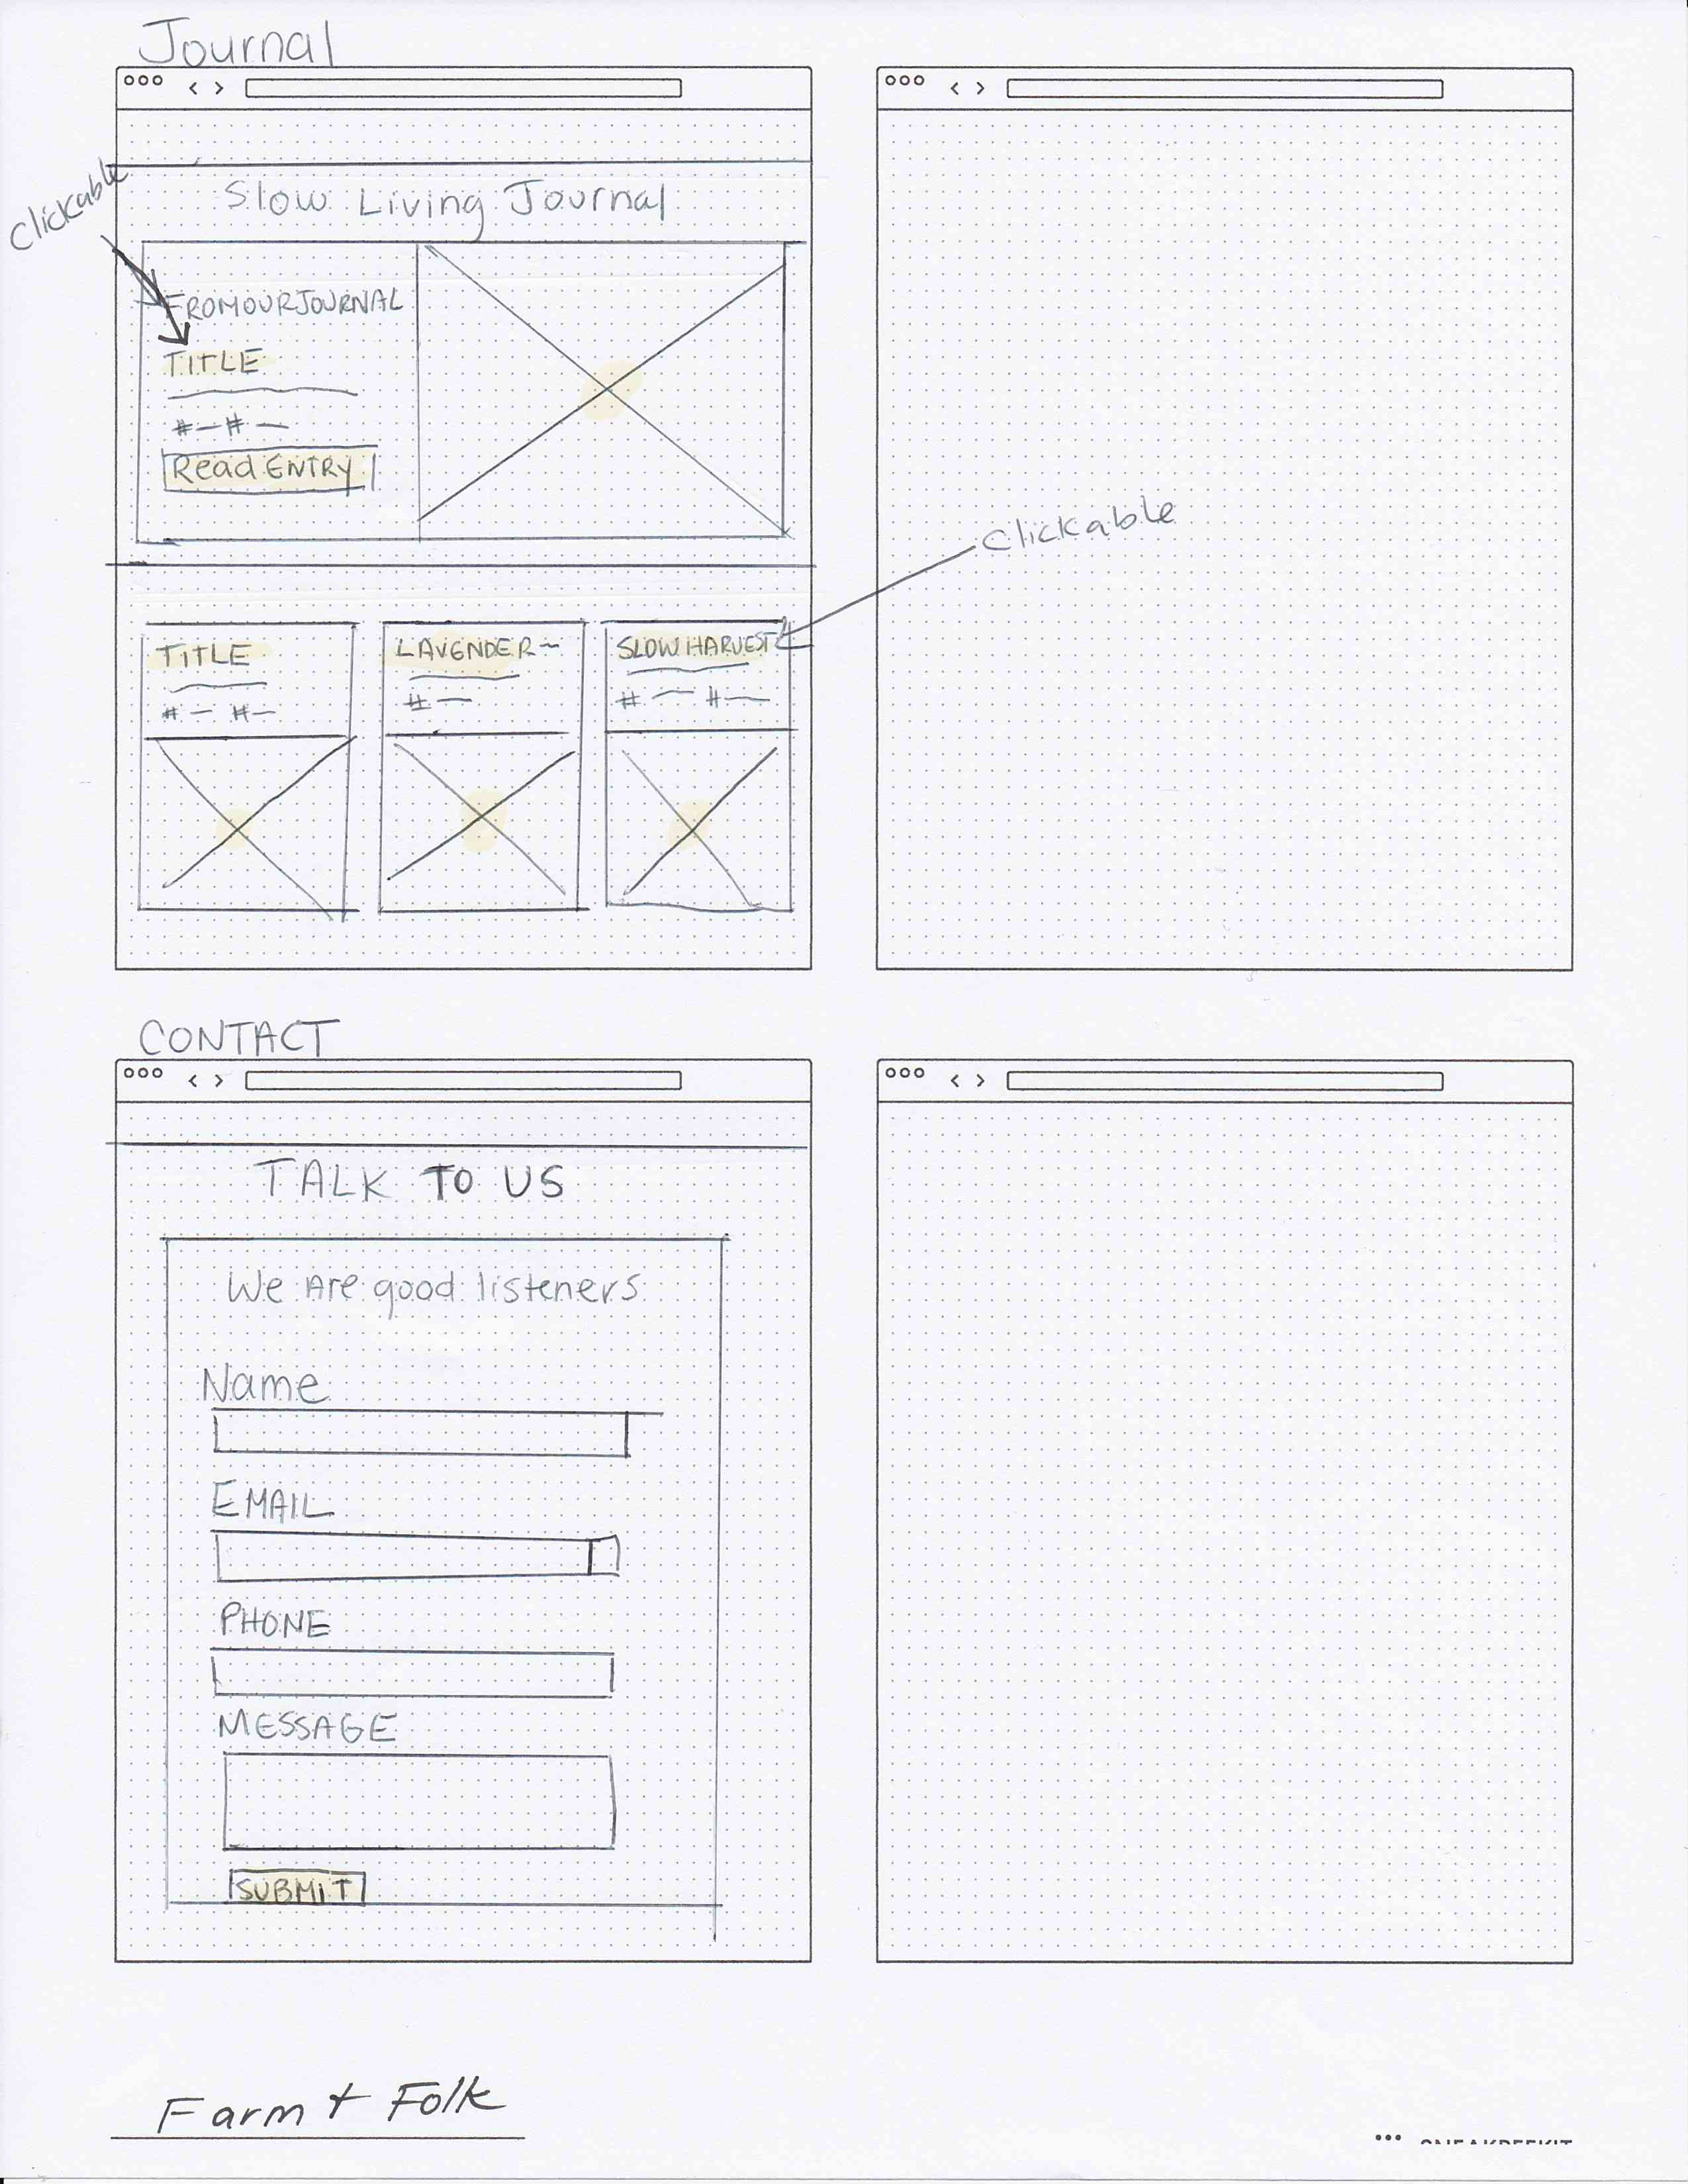 Journal
Clickable
Slow Living Journal
FROM OUR JOURNAL
TITLE
# #
Read ENTRY
Clickable
TITLE
# #
LAVENDER~
#
SLOW HARVEST
# #
CONTACT
TALK TO US
We Are good listeners
Name
EMAIL
PHONE
MESSAGE
SUBMIT
Farm + Folk